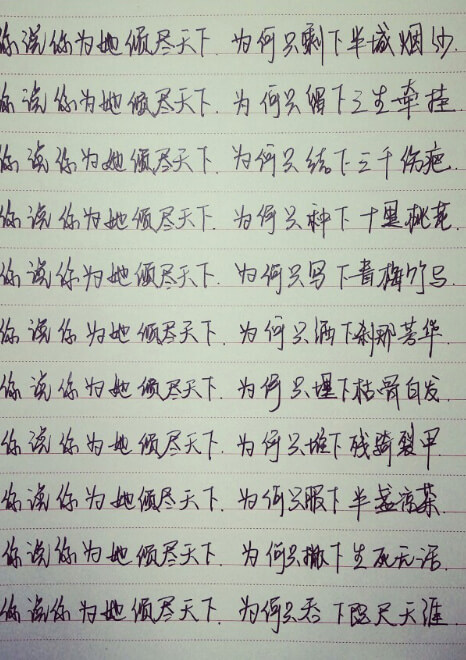 你说你为她倾尽天下.为何只剩下半城烟沙.
你说你为她倾尽天下.为何只留下三生牵挂.
你说你为她倾尽天下.为何只结下三千伤疤.
你说你为她倾尽天下.为何只种下十里桃花.
你说你为她倾尽天下.为何只写下青梅竹马.
你说你为她倾尽天下.为何只洒下刹那芳华.
你说你为她倾尽天下.为何只埋下枯骨白发.
你说你为她倾尽天下.为何只堆下残骑裂甲.
你说你为她倾尽天下.为何只服下半盏凉茶.
你说你为她倾尽天下.为何只撒下生死无话.
你说你为她倾尽天下.为何只吞下咫尺天涯.